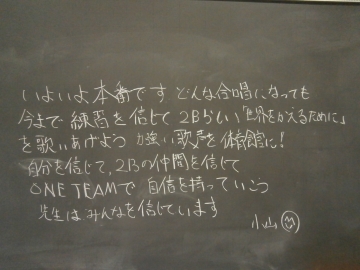 いよいよ本番です どんな合唱になっても
今まで練習を信じて 2Bらしい「世界をかえるために」
を歌いあげよう 力強い歌声を体育館に!
自分を信じて、2Bの仲間を信じて
ONE TEAMで 自信を持っていこう
先生はみんなを信じています
小山